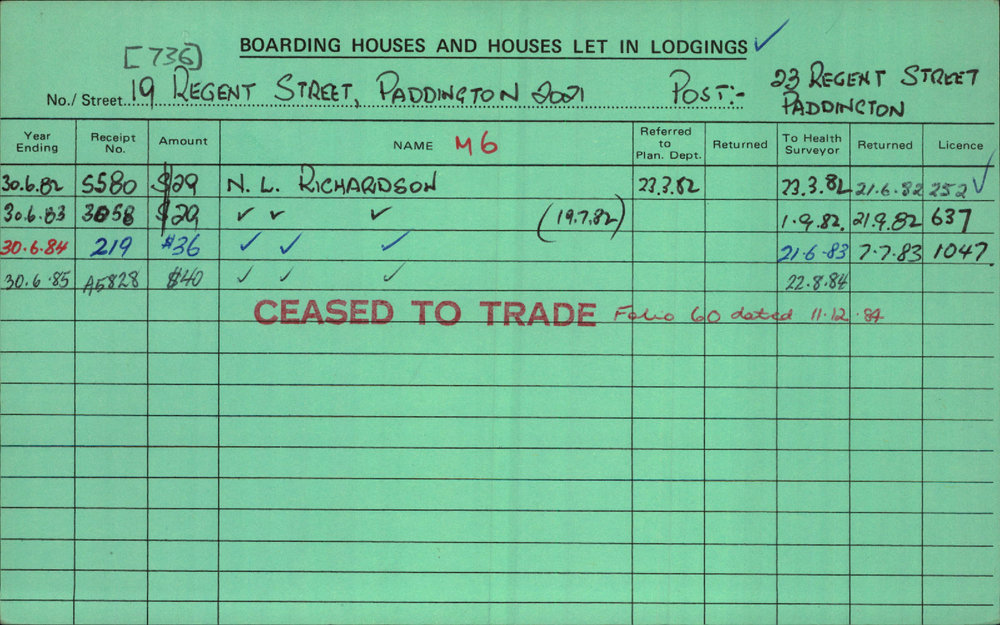 [736]
BOARDING HOUSES AND HOUSES LET IN LODGINGS ✓
No./ Street 19 REGENT STREET, PADDINGTON 2021 POST:- 23 REGENT STREET
PADDINGTON
Year Ending Receipt No. Amount NAME M6 Referred to Plan. Dept. Returned To Health Surveyor Returned Licence
30.6.82 5580 $29 N. L. RICHARDSON 23.3.82 23.3.82 21.6.82 252 ✓
30.6.83 3058 $29 ✓ ✓ ✓ (19.7.82) 1.9.82. 21.9.82 637
30.6.84 219 $36 ✓ ✓ ✓ 21.6.83 7.7.83 1047
30.6.85 A5828 $40 ✓ ✓ ✓ 22.8.84
CEASED TO TRADE Folio 60 dated 11.12.84